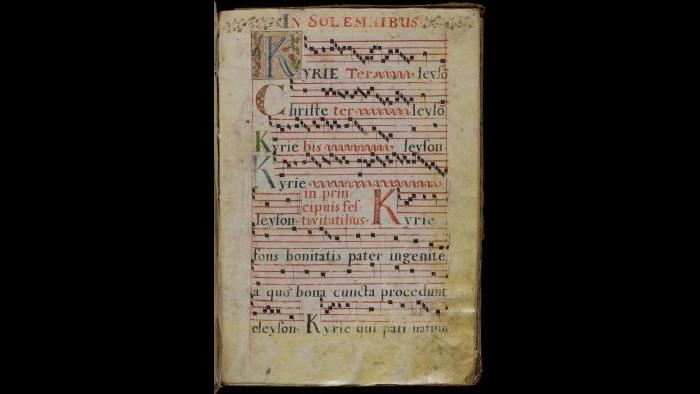 IN SOLEMNIBUS
KYRIE Ter leyſo
Chriſte ter leyſo
Kyrie bis leyſon
Kyrie
in prin-
cipuis feſ-
leyſon tivitatibus· Kyrie
fons bonitatis pater ingenite
a quo bona cuncta procedunt
eleyſon· Kyrie qui pati